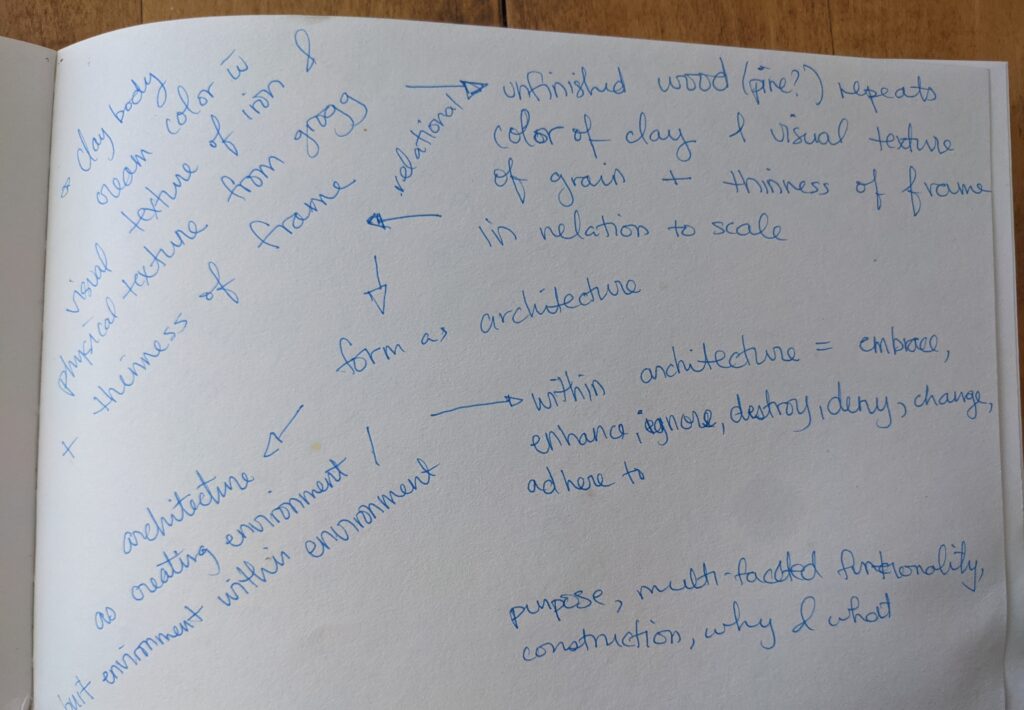 clay body
cream color w
visual texture of iron &
physical texture from grogg
+ thinness of frame
relational
unfinished wood (pine?) repeats
color of clay & visual texture
of grain + thinness of frame
in relation to scale
form as architecture
within architecture = embrace,
enhance, ignore, destroy, deny, change,
adhere to
architecture
as creating environment /
built environment within environment
purpose, multi-faceted functionality,
construction, why & what